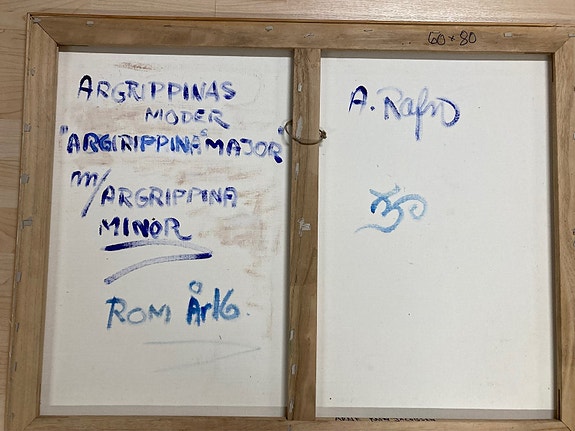 60 x 80
ARGRIPPINAS
MODER
"ARGIRIPPINA" MAJOR"
m/ARGRIPPINA
MINOR
ROM År 16.
A. Rafn